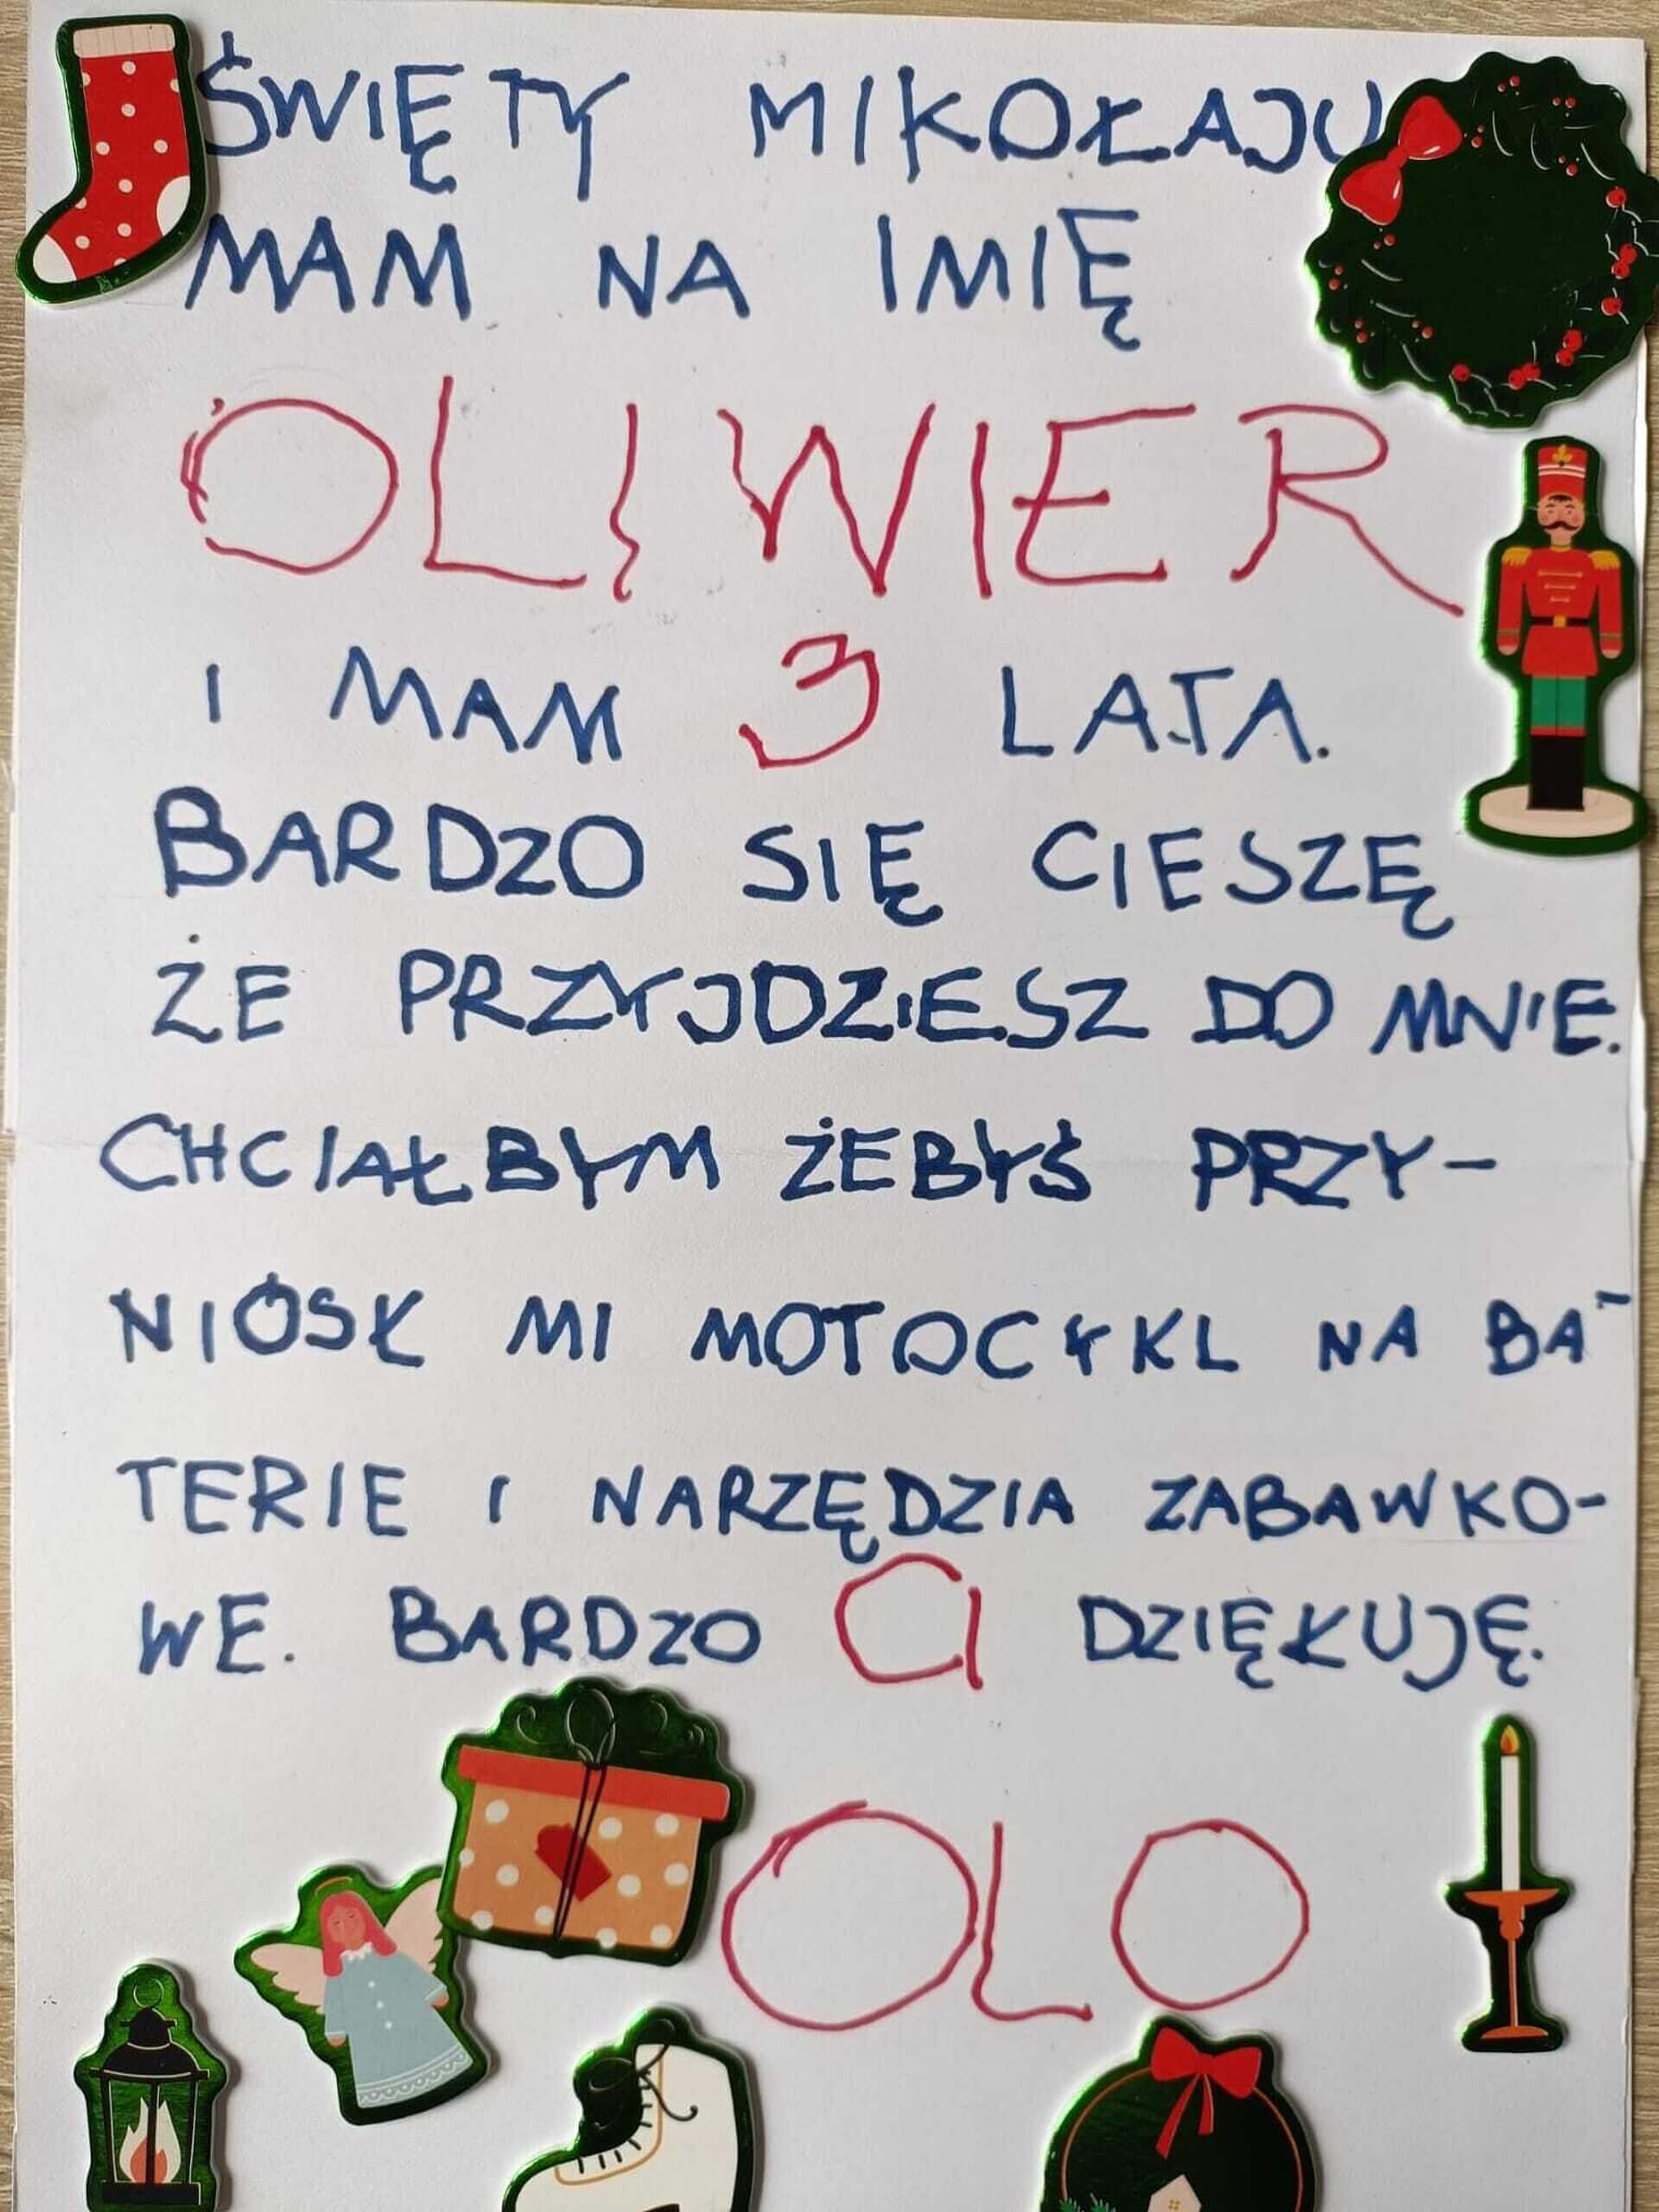 ŚWIĘTY MIKOŁAJU
MAM NA IMIĘ
OLIWIER
I MAM 3 LATA.
BARDZO SIĘ CIESZĘ
ŻE PRZYJDZIESZ DO MNIE.
CHCIAŁBYM ŻEBYŚ PRZY-
NIÓSŁ MI MOTOCYKL NA BA-
TERIE I NARZĘDZIA ZABAWKO-
WE. BARDZO CI DZIĘKUJĘ.
OLO